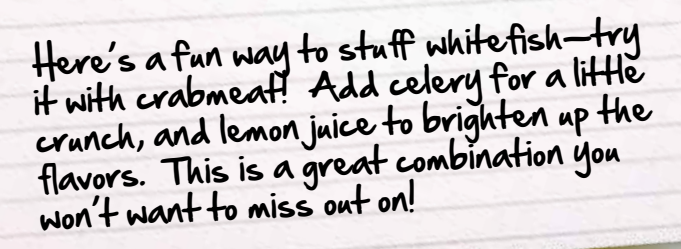 Here's a fun way to stuff whitefish—try
it with crabmeat! Add celery for a little
crunch, and lemon juice to brighten up the
flavors. This is a great combination you
won't want to miss out on!